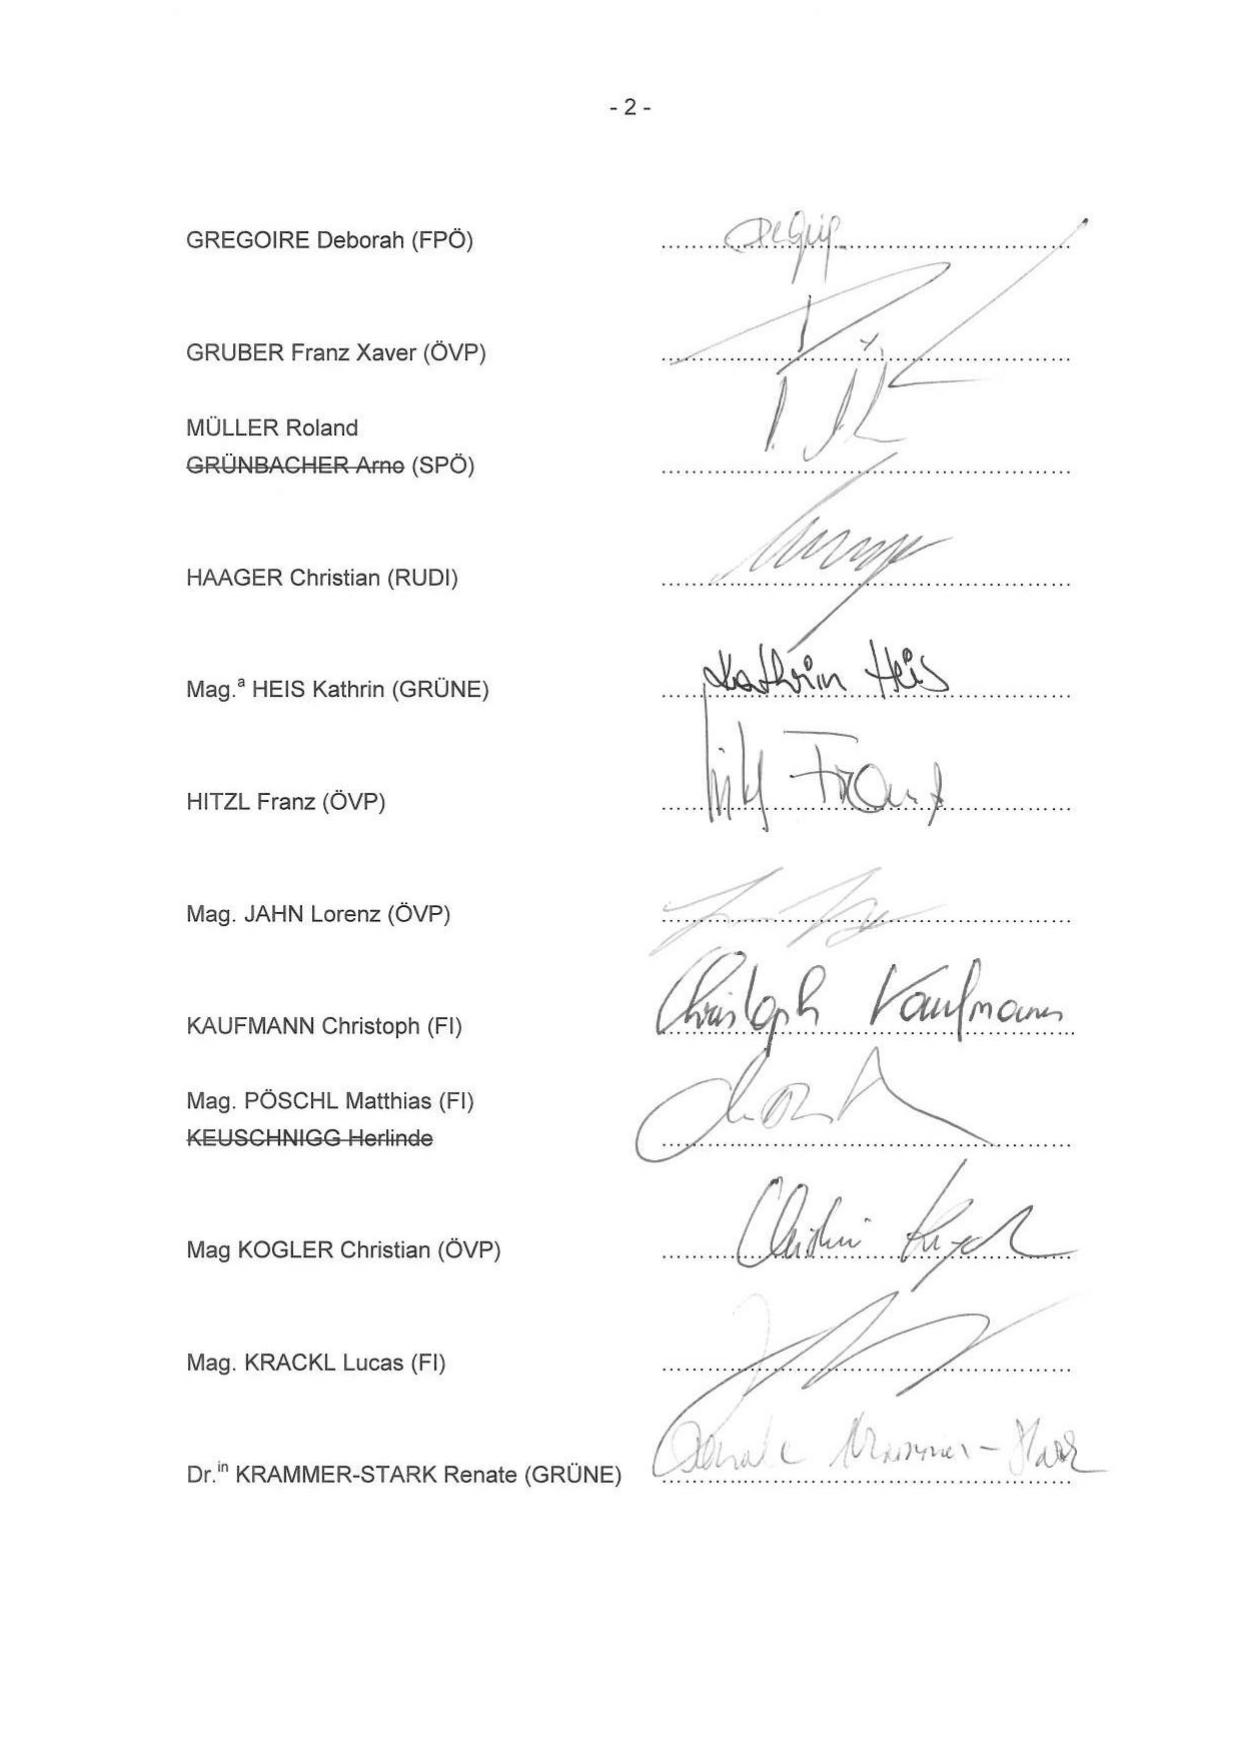 - 2 -
GREGOIRE Deborah (FPÖ)
GRUBER Franz Xaver (ÖVP)
MÜLLER Roland
GRÜNBACHER Arno (SPÖ)
HAAGER Christian (RUDI)
Mag.ª HEIS Kathrin (GRÜNE) Kathrin Heis
HITZL Franz (ÖVP) Hitzl Franz
Mag. JAHN Lorenz (ÖVP)
KAUFMANN Christoph (FI) Christoph Kaufmann
Mag. PÖSCHL Matthias (FI)
KEUSCHNIGG Herlinde
Mag KOGLER Christian (ÖVP) Christian Kogler
Mag. KRACKL Lucas (FI)
Dr.in KRAMMER-STARK Renate (GRÜNE) Renate Krammer-Stark